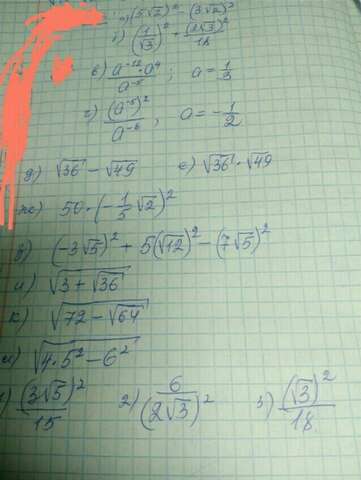 а) (5√2)² - (3√2)²
б) (1/√3)² + (2√3)²/18
в) a⁻¹² · a⁴ / a⁻⁵ ; a = 1/3
г) (a⁻⁵)² / a⁻⁶ , a = -1/2
д) √36 - √49 е) √36 · √49
ж) 50 · (-1/5 √2)²
з) (-3√5)² + 5(√12)² - (7√5)²
и) √(3 + √36)
к) √(72 - √64)
л) √(4·5² - 6²)
1) (3√5)² / 15 2) 6 / (2√3)² 3) (√3)² / 18